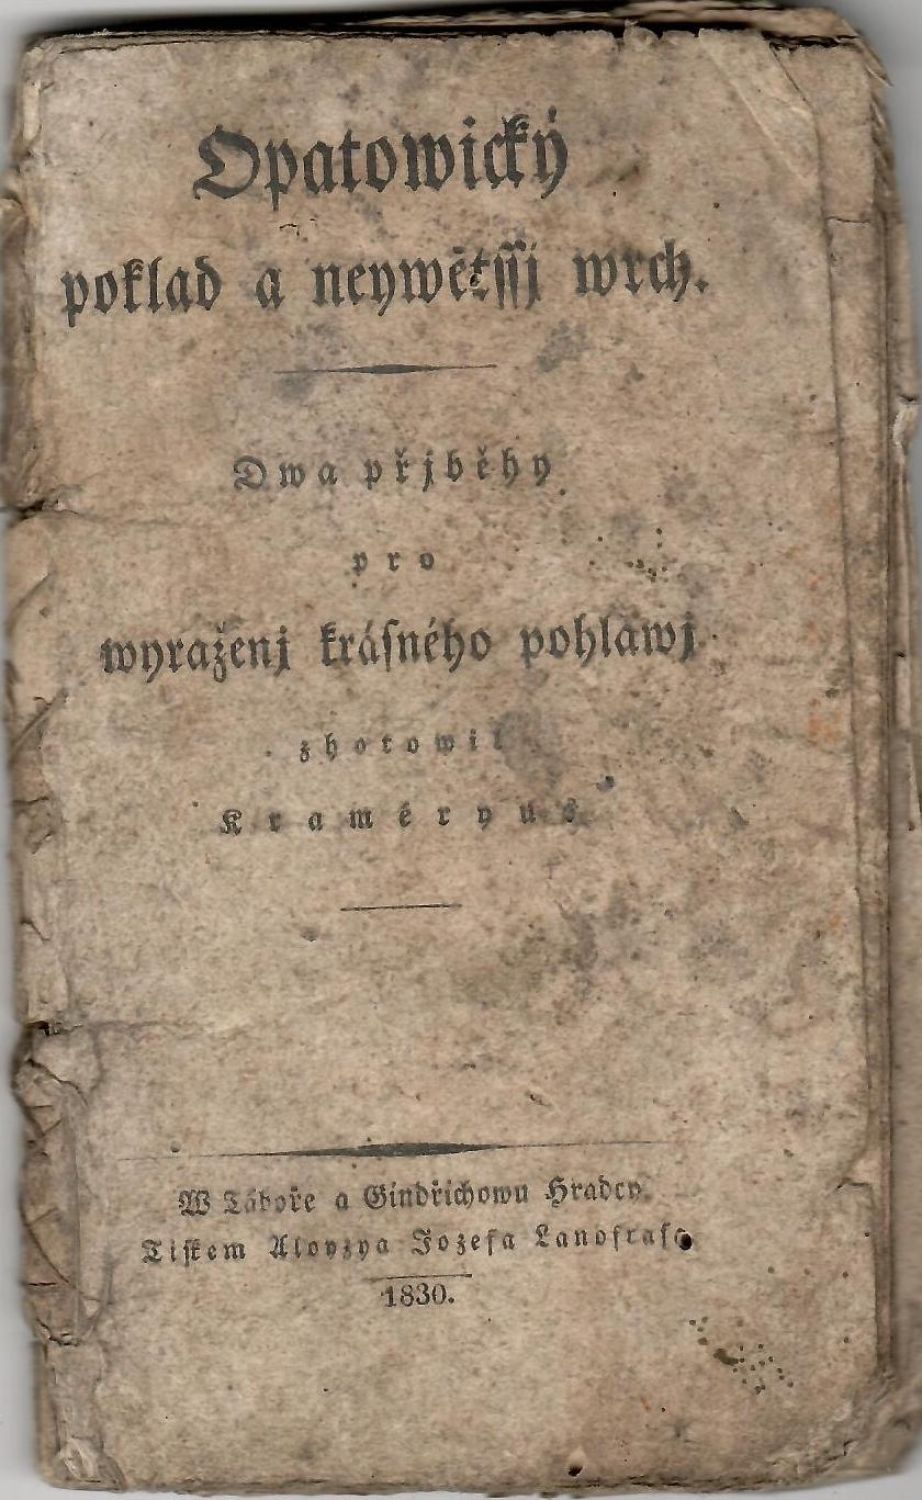 Opatowický
poklad a neywětſſj wrch.
Dwa přjběhy
pro
wyraženj kráſného pohlawj
zhotowil
Kraméryus
W Táboře a Gindřichowu Hradcy.
Tiſkem Aloyzya Jozefa Landfraſa
1830.